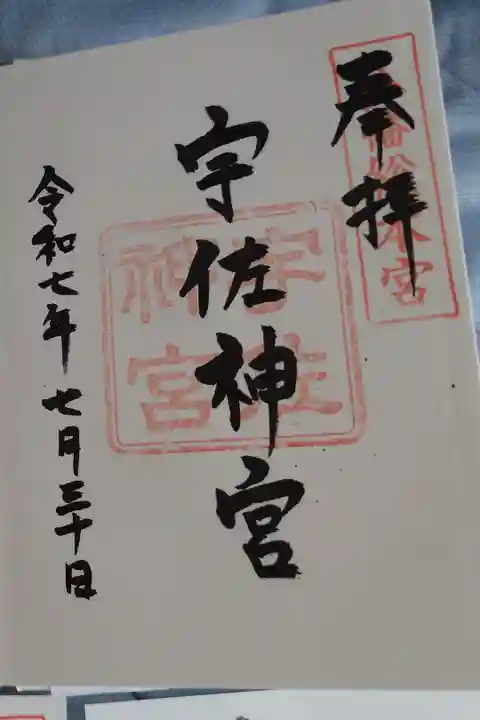 奉拝
八幡総本宮
宇佐神宮
宇佐神宮
令和七年 七月三十日